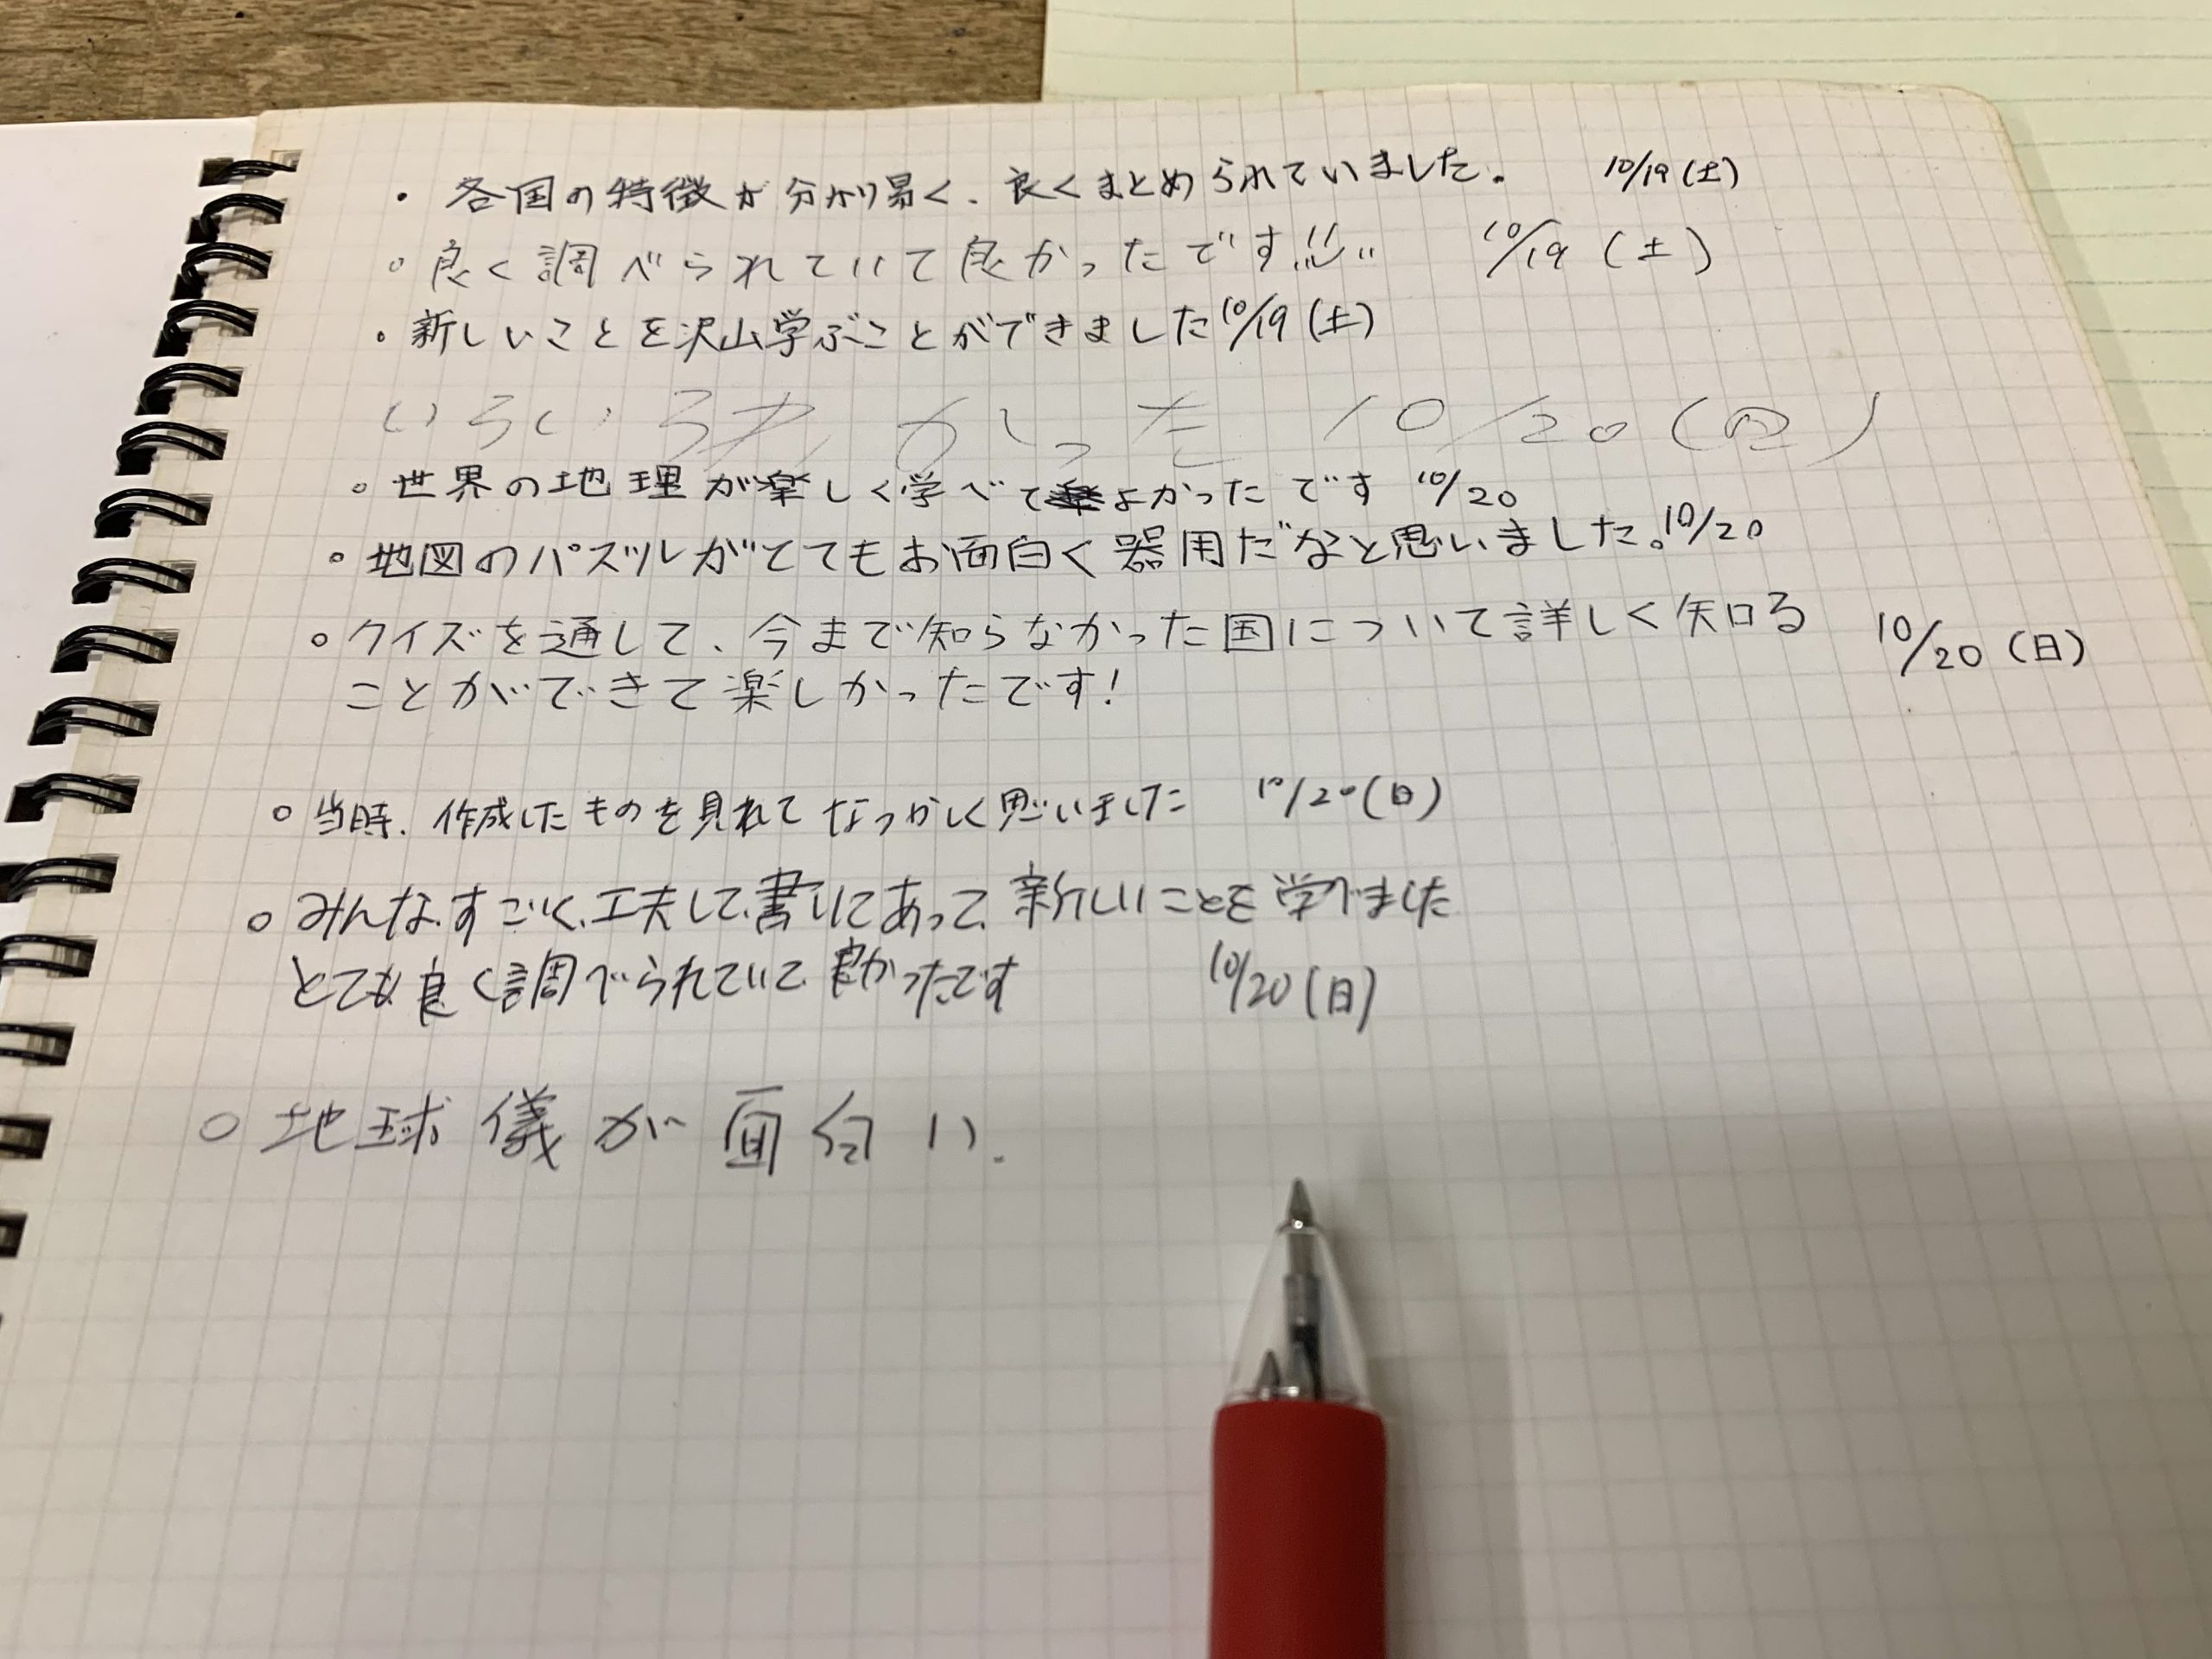 ・各国の特徴が分かり易く、良くまとめられていました。 10/19(土)
○良く調べられていて良かったです!! 10/19(土)
・新しいことを沢山学ぶことができました 10/19(土)
いろいろわかった 10/20(日)
○世界の地理が楽しく学べてよかったです 10/20
○地図のパズルがとてもお面白く器用だなと思いました。10/20
○クイズを通して、今まで知らなかった国について詳しく知る 10/20(日)
ことができて楽しかったです!
○当時、作成したものを見れてなつかしく思いました 10/20(日)
○みんなすごく、工夫して、書いてあって、新しいことを学べました
とても良く調べられていて、良かったです 10/20(日)
○地球儀が面白い.